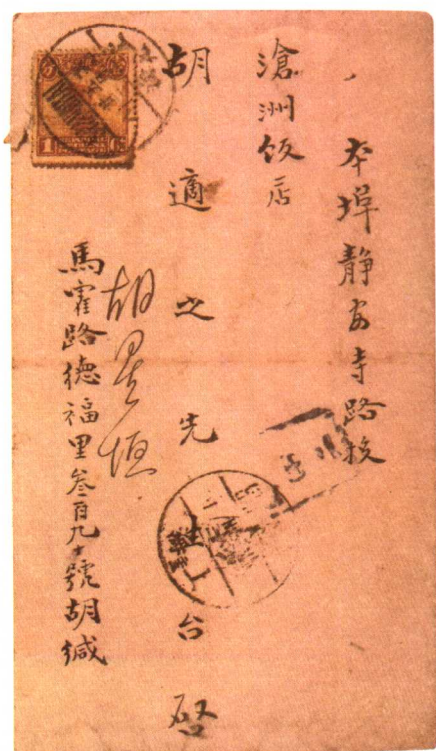 本埠静安寺路投
滄洲饭店
胡適之先生台啓
胡
馬霍路德福里叁百九十號胡缄
1